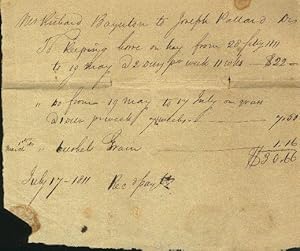 Mr Richard Boynton to Joseph Pollard Dr
To Keeping horse on hay from 28 Feby 1811
to 19 may 11 weeks $22 —
" Do from 19 may to 17 July on grass
7.50
" bushels Grain 1.16
$30.66
July 17 - 1811 Recd Pay